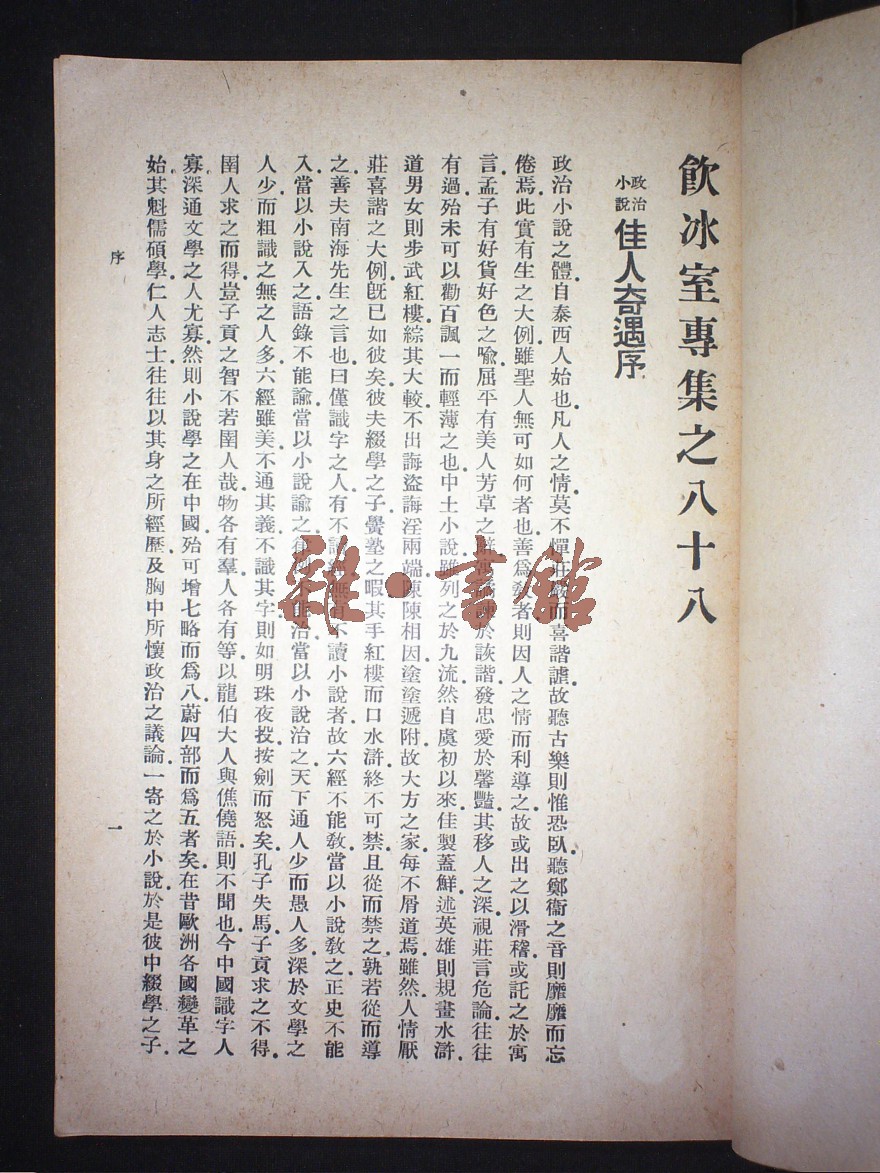 飮冰室專集之八十八
政治小說 佳人奇遇序
政治小說之體自泰西人始也凡人之情莫不憚莊嚴而喜諧謔故聽古樂則惟恐臥聽鄭衞之音則靡靡而忘
倦焉此實有生之大例雖聖人無可如何者也善爲敎者則因人之情而利導之故或出之以滑稽或託之於寓
言孟子有好貨好色之喩屈平有美人芳草之辭寓譎諫於詼諧發忠愛於馨艷其移人之深視莊言危論往往
有過殆未可以勸百諷一而輕薄之也中土小說雖列之於九流然自虞初以來佳製蓋鮮述英雄則規畫水滸
道男女則步武紅樓綜其大較不出誨盜誨淫兩端陳陳相因塗塗遞附故大方之家每不屑道焉雖然人情厭
莊喜諧之大例旣已如彼矣彼夫綴學之子黌塾之暇其手紅樓而口水滸終不可禁且從而禁之孰若從而導
之善夫南海先生之言也曰僅識字之人有不讀經無有不讀小說者故六經不能敎當以小說敎之正史不能
入當以小說入之語錄不能諭當以小說諭之律例不能治當以小說治之天下通人少而愚人多深於文學之
人少而粗識之無之人多六經雖美不通其義不識其字則如明珠夜投按劍而怒矣孔子失馬子貢求之不得
圉人求之而得豈子貢之智不若圉人哉物各有羣人各有等以龍伯大人與僬僥語則不聞也今中國識字人
寡深通文學之人尤寡然則小說學之在中國殆可增七略而爲八蔚四部而爲五者矣在昔歐洲各國變革之
始其魁儒碩學仁人志士往往以其身之所經歷及胸中所懷政治之議論一寄之於小說於是彼中綴學之子
序
一
雜·書館